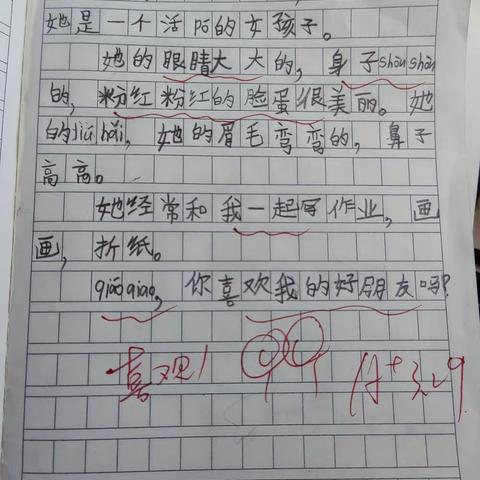 她是一个活pō的女孩子。
她的眼睛大大的，身子shòu shòu
的，粉红粉红的脸蛋很美丽。她
的liú hǎi，她的眉毛弯弯的，鼻子
高高。
她经常和我一起写作业，画
画，折纸。
qiāo qiāo，你喜欢我的好朋友吗？
喜观！
A+ 3.29